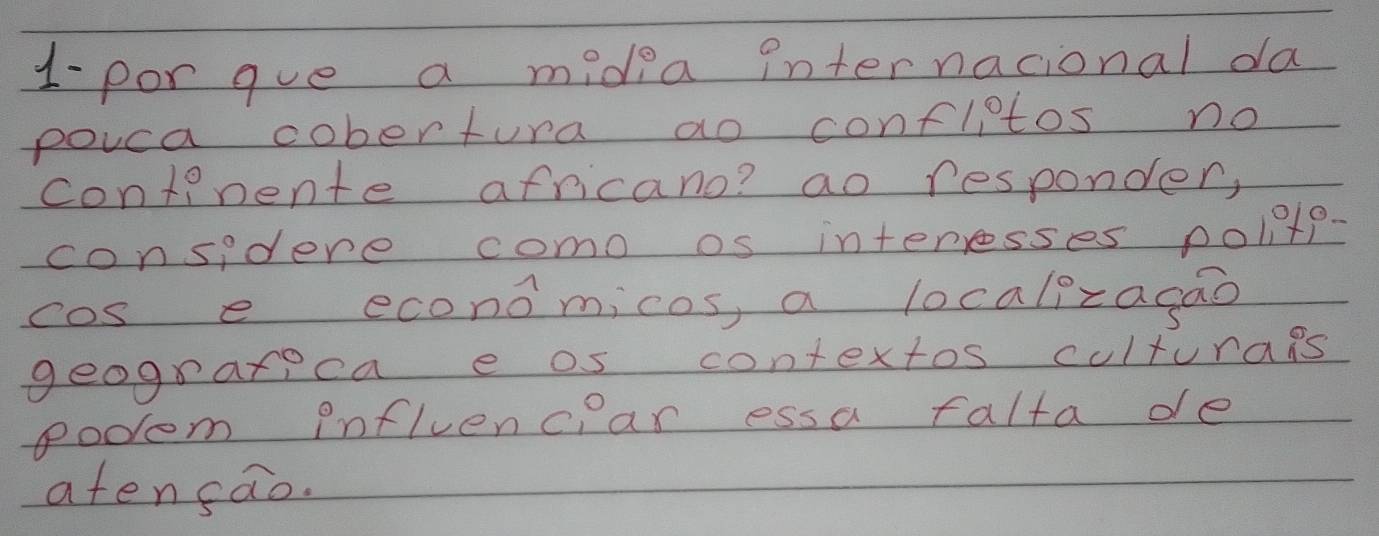 1- por que a midia internacional da
pouca cobertura ao conflitos no
continente africano? ao responder,
considere como os interesses politi-
cos e econômicos, a localização
geografica e os contextos culturais
podem influenciar essa falta de
atenção.